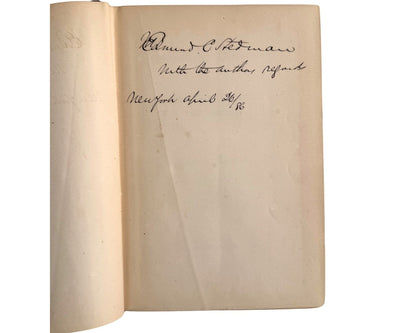 Edmund. C Stedman
with the authors regards
New York April 26/86